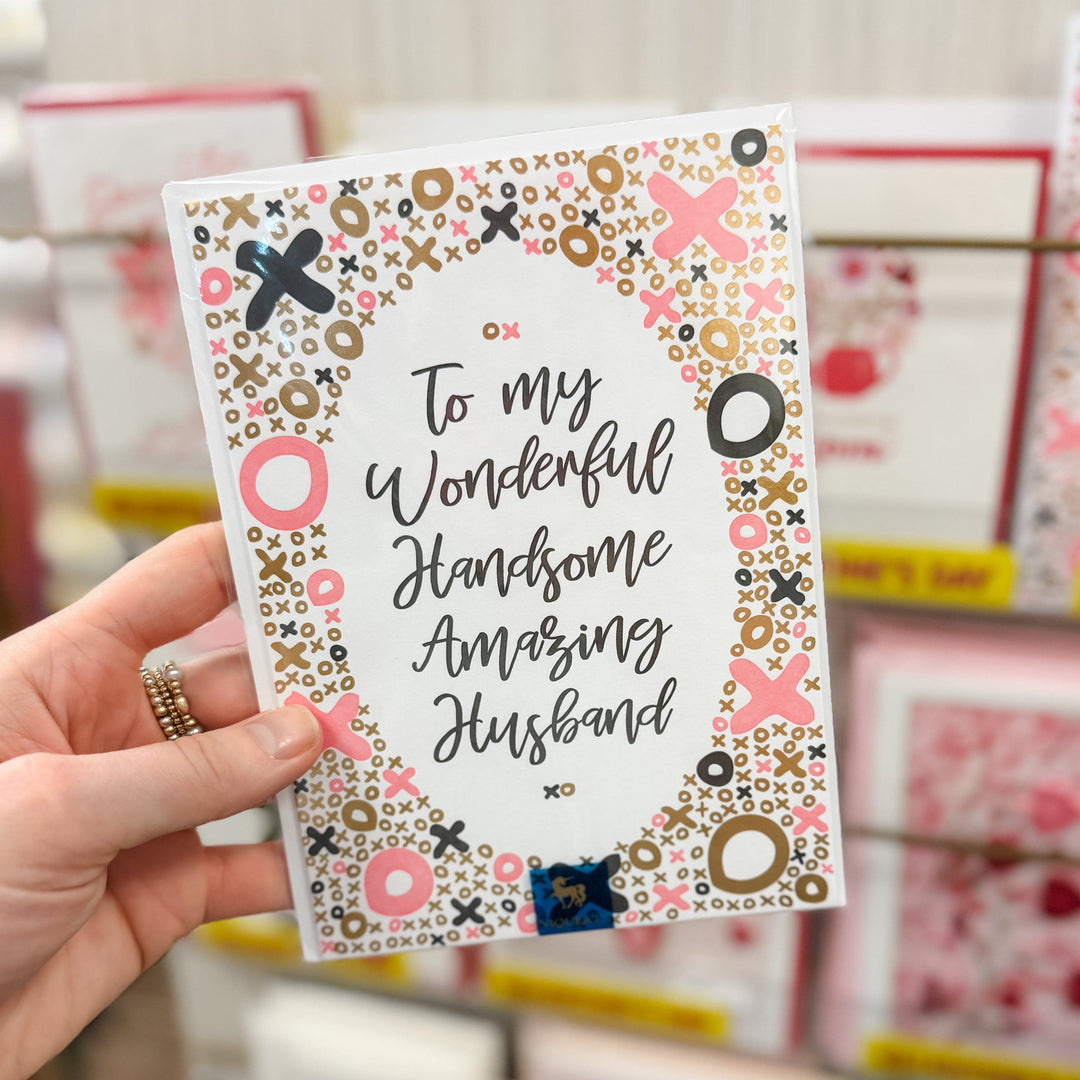 ox
To my
Wonderful
Handsome
Amazing
Husband
xo
NE'S DAY